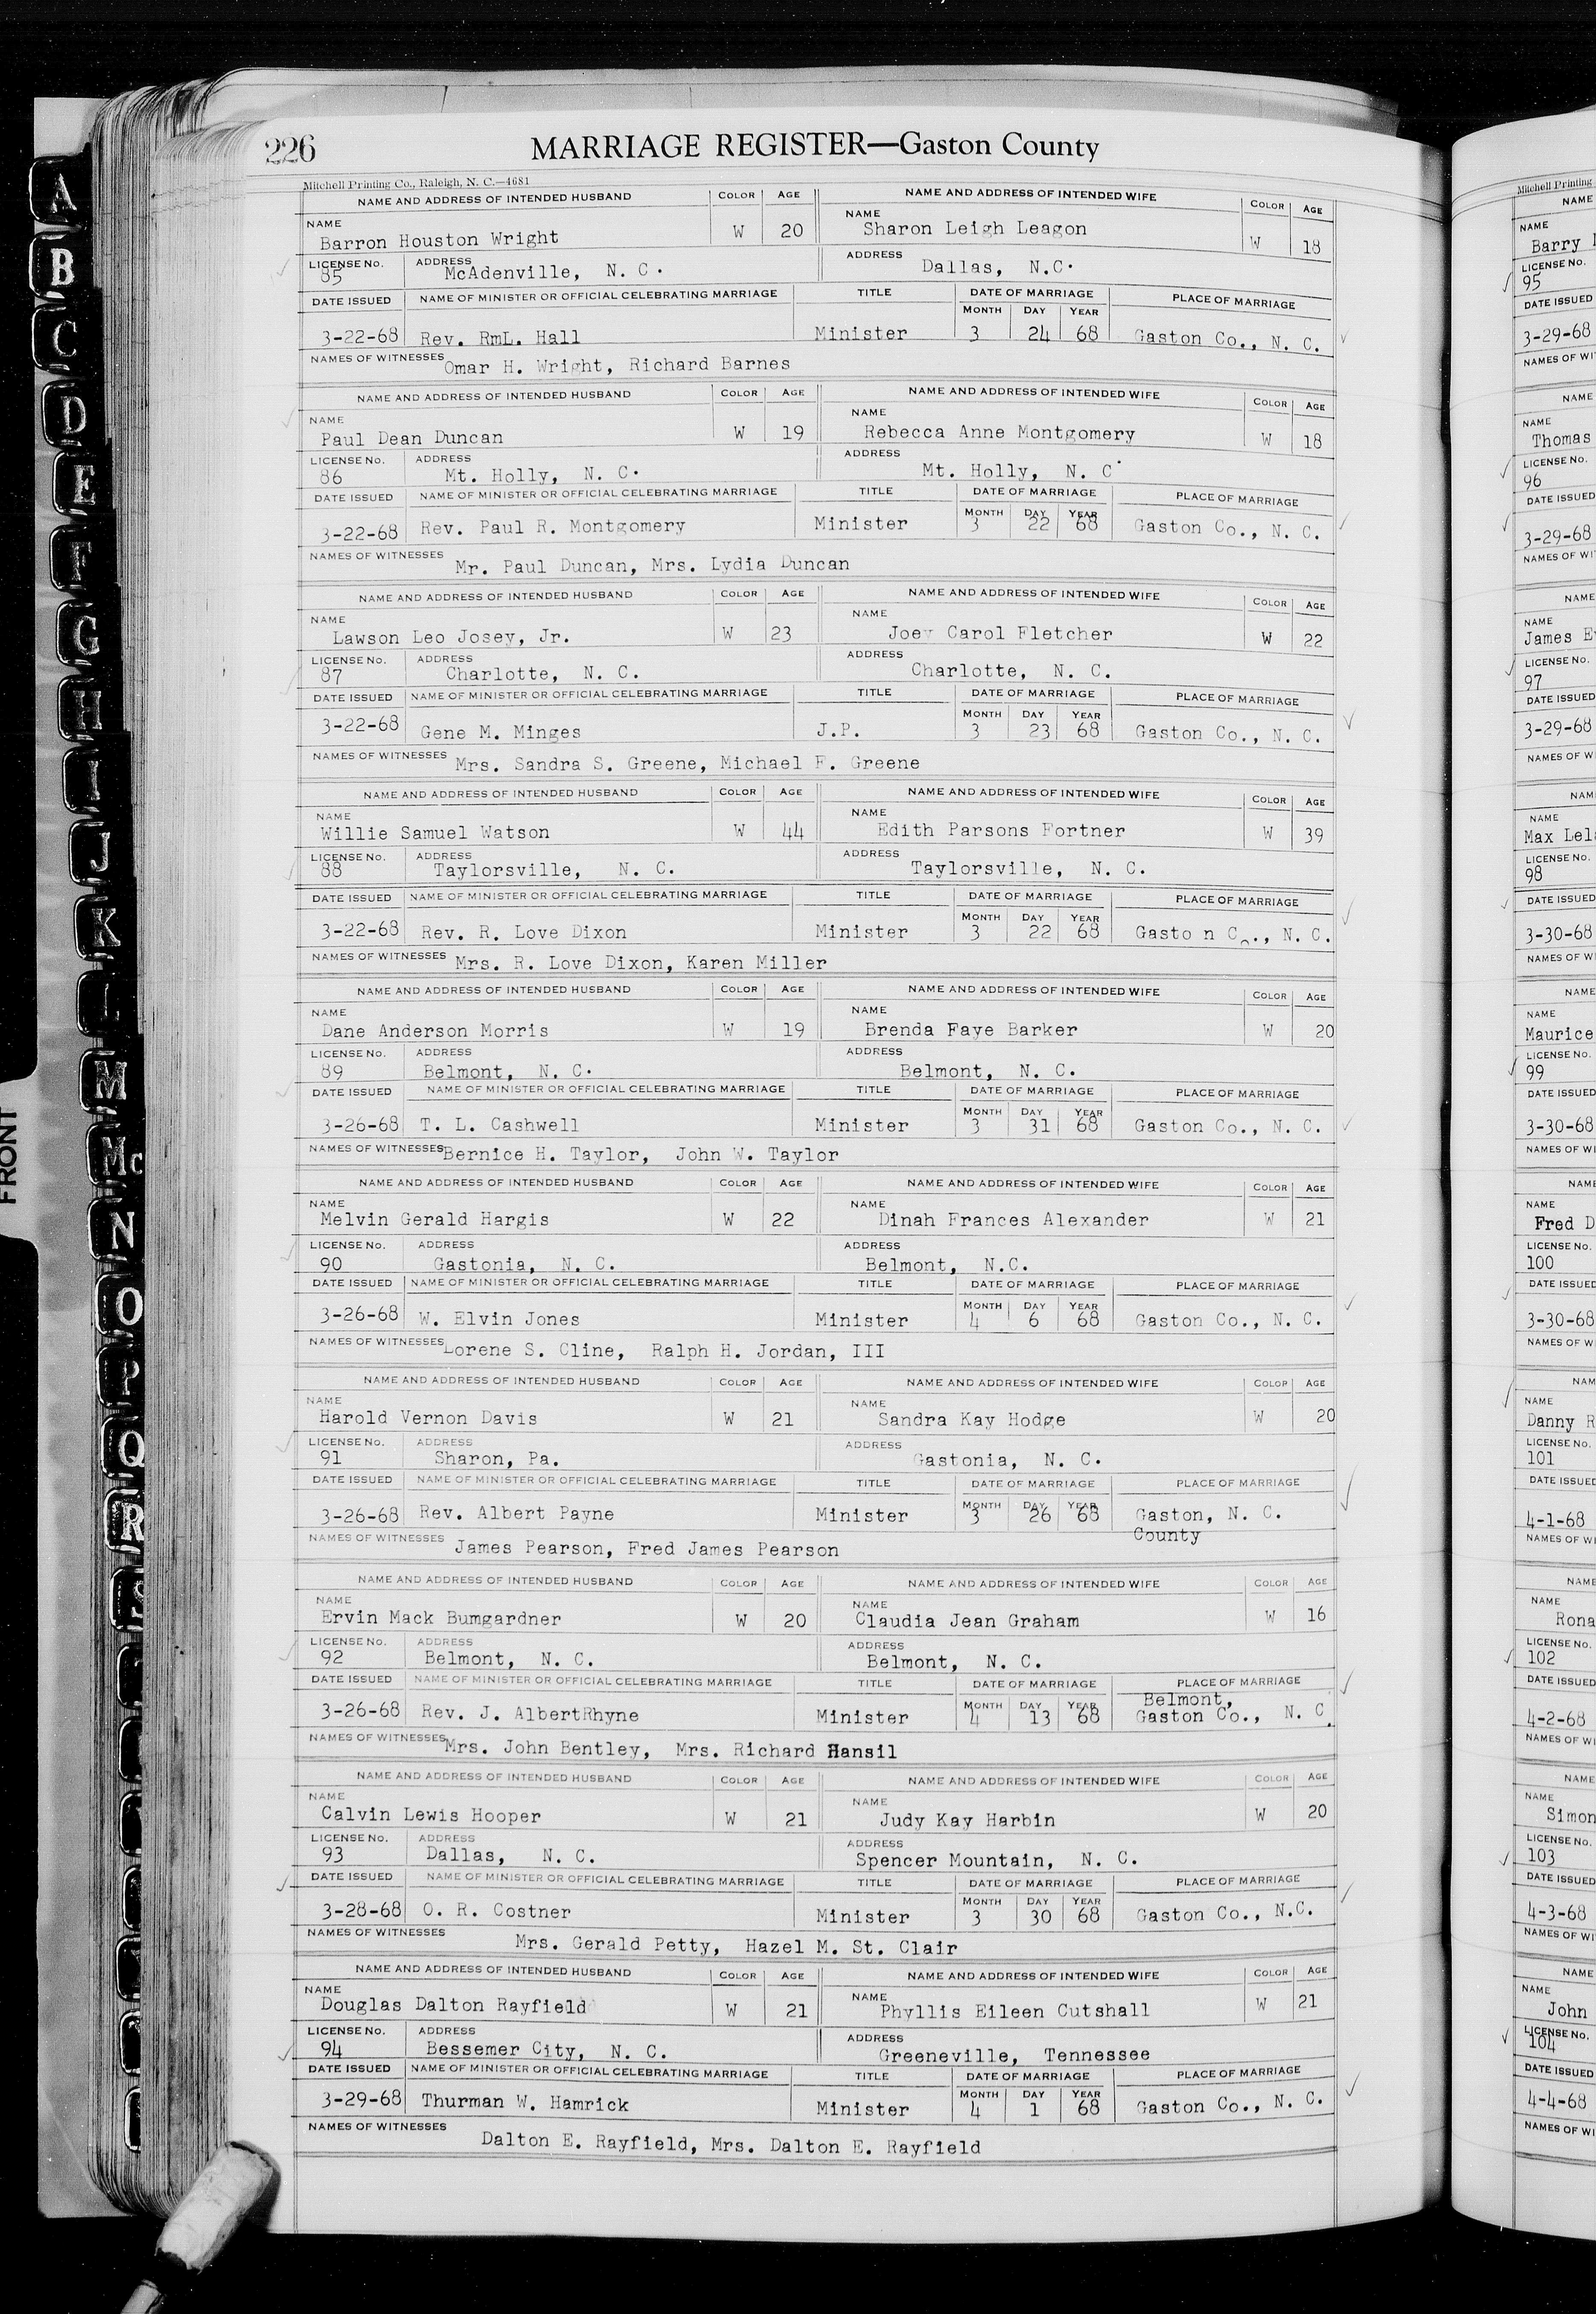 226
MARRIAGE REGISTER—Gaston County
Mitchell Printing Co., Raleigh, N. C.—4681
NAME AND ADDRESS OF INTENDED HUSBAND COLOR AGE NAME AND ADDRESS OF INTENDED WIFE COLOR AGE
NAME Barron Houston Wright W 20 NAME Sharon Leigh Leagon W 18
LICENSE No. 85 ADDRESS McAdenville, N. C. ADDRESS Dallas, N.C.
DATE ISSUED NAME OF MINISTER OR OFFICIAL CELEBRATING MARRIAGE TITLE DATE OF MARRIAGE PLACE OF MARRIAGE
MONTH DAY YEAR
3-22-68 Rev. RmL. Hall Minister 3 24 68 Gaston Co., N. C.
NAMES OF WITNESSES Omar H. Wright, Richard Barnes
NAME AND ADDRESS OF INTENDED HUSBAND COLOR AGE NAME AND ADDRESS OF INTENDED WIFE COLOR AGE
NAME Paul Dean Duncan W 19 NAME Rebecca Anne Montgomery W 18
LICENSE No. 86 ADDRESS Mt. Holly, N. C. ADDRESS Mt. Holly, N. C.
DATE ISSUED NAME OF MINISTER OR OFFICIAL CELEBRATING MARRIAGE TITLE DATE OF MARRIAGE PLACE OF MARRIAGE
MONTH DAY YEAR
3-22-68 Rev. Paul R. Montgomery Minister 3 22 68 Gaston Co., N. C.
NAMES OF WITNESSES Mr. Paul Duncan, Mrs. Lydia Duncan
NAME AND ADDRESS OF INTENDED HUSBAND COLOR AGE NAME AND ADDRESS OF INTENDED WIFE COLOR AGE
NAME Lawson Leo Josey, Jr. W 23 NAME Joey Carol Fletcher W 22
LICENSE No. 87 ADDRESS Charlotte, N. C. ADDRESS Charlotte, N. C.
DATE ISSUED NAME OF MINISTER OR OFFICIAL CELEBRATING MARRIAGE TITLE DATE OF MARRIAGE PLACE OF MARRIAGE
MONTH DAY YEAR
3-22-68 Gene M. Minges J.P. 3 23 68 Gaston Co., N. C.
NAMES OF WITNESSES Mrs. Sandra S. Greene, Michael F. Greene
NAME AND ADDRESS OF INTENDED HUSBAND COLOR AGE NAME AND ADDRESS OF INTENDED WIFE COLOR AGE
NAME Willie Samuel Watson W 44 NAME Edith Parsons Fortner W 39
LICENSE No. 88 ADDRESS Taylorsville, N. C. ADDRESS Taylorsville, N. C.
DATE ISSUED NAME OF MINISTER OR OFFICIAL CELEBRATING MARRIAGE TITLE DATE OF MARRIAGE PLACE OF MARRIAGE
MONTH DAY YEAR
3-22-68 Rev. R. Love Dixon Minister 3 22 68 Gasto n Co., N. C.
NAMES OF WITNESSES Mrs. R. Love Dixon, Karen Miller
NAME AND ADDRESS OF INTENDED HUSBAND COLOR AGE NAME AND ADDRESS OF INTENDED WIFE COLOR AGE
NAME Dane Anderson Morris W 19 NAME Brenda Faye Barker W 20
LICENSE No. 89 ADDRESS Belmont, N. C. ADDRESS Belmont, N. C.
DATE ISSUED NAME OF MINISTER OR OFFICIAL CELEBRATING MARRIAGE TITLE DATE OF MARRIAGE PLACE OF MARRIAGE
MONTH DAY YEAR
3-26-68 T. L. Cashwell Minister 3 31 68 Gaston Co., N. C.
NAMES OF WITNESSES Bernice H. Taylor, John W. Taylor
NAME AND ADDRESS OF INTENDED HUSBAND COLOR AGE NAME AND ADDRESS OF INTENDED WIFE COLOR AGE
NAME Melvin Gerald Hargis W 22 NAME Dinah Frances Alexander W 21
LICENSE No. 90 ADDRESS Gastonia, N. C. ADDRESS Belmont, N.C.
DATE ISSUED NAME OF MINISTER OR OFFICIAL CELEBRATING MARRIAGE TITLE DATE OF MARRIAGE PLACE OF MARRIAGE
MONTH DAY YEAR
3-26-68 W. Elvin Jones Minister 4 6 68 Gaston Co., N. C.
NAMES OF WITNESSES Lorene S. Cline, Ralph H. Jordan, III
NAME AND ADDRESS OF INTENDED HUSBAND COLOR AGE NAME AND ADDRESS OF INTENDED WIFE COLOR AGE
NAME Harold Vernon Davis W 21 NAME Sandra Kay Hodge W 20
LICENSE No. 91 ADDRESS Sharon, Pa. ADDRESS Gastonia, N. C.
DATE ISSUED NAME OF MINISTER OR OFFICIAL CELEBRATING MARRIAGE TITLE DATE OF MARRIAGE PLACE OF MARRIAGE
MONTH DAY YEAR
3-26-68 Rev. Albert Payne Minister 3 26 68 Gaston, N. C.
County
NAMES OF WITNESSES James Pearson, Fred James Pearson
NAME AND ADDRESS OF INTENDED HUSBAND COLOR AGE NAME AND ADDRESS OF INTENDED WIFE COLOR AGE
NAME Ervin Mack Bumgardner W 20 NAME Claudia Jean Graham W 16
LICENSE No. 92 ADDRESS Belmont, N. C. ADDRESS Belmont, N. C.
DATE ISSUED NAME OF MINISTER OR OFFICIAL CELEBRATING MARRIAGE TITLE DATE OF MARRIAGE PLACE OF MARRIAGE
MONTH DAY YEAR Belmont,
3-26-68 Rev. J. AlbertRhyne Minister 4 13 68 Gaston Co., N. C.
NAMES OF WITNESSES Mrs. John Bentley, Mrs. Richard Hansil
NAME AND ADDRESS OF INTENDED HUSBAND COLOR AGE NAME AND ADDRESS OF INTENDED WIFE COLOR AGE
NAME Calvin Lewis Hooper W 21 NAME Judy Kay Harbin W 20
LICENSE No. 93 ADDRESS Dallas, N. C. ADDRESS Spencer Mountain, N. C.
DATE ISSUED NAME OF MINISTER OR OFFICIAL CELEBRATING MARRIAGE TITLE DATE OF MARRIAGE PLACE OF MARRIAGE
MONTH DAY YEAR
3-28-68 O. R. Costner Minister 3 30 68 Gaston Co., N.C.
NAMES OF WITNESSES Mrs. Gerald Petty, Hazel M. St. Clair
NAME AND ADDRESS OF INTENDED HUSBAND COLOR AGE NAME AND ADDRESS OF INTENDED WIFE COLOR AGE
NAME Douglas Dalton Rayfield W 21 NAME Phyllis Eileen Cutshall W 21
LICENSE No. 94 ADDRESS Bessemer City, N. C. ADDRESS Greeneville, Tennessee
DATE ISSUED NAME OF MINISTER OR OFFICIAL CELEBRATING MARRIAGE TITLE DATE OF MARRIAGE PLACE OF MARRIAGE
MONTH DAY YEAR
3-29-68 Thurman W. Hamrick Minister 4 1 68 Gaston Co., N. C.
NAMES OF WITNESSES Dalton E. Rayfield, Mrs. Dalton E. Rayfield
A
B
C
D
E
F
G
H
I
J
K
L
M
Mc
N
O
P
Q
R
S
FRONT
Mitchell Printing
NAME
NAME
Barry
LICENSE No.
95
DATE ISSUED
3-29-68
NAMES OF WI
NAME
NAME
Thomas
LICENSE No.
96
DATE ISSUED
3-29-68
NAMES OF WI
NAME
NAME
James E
LICENSE No.
97
DATE ISSUED
3-29-68
NAMES OF W
NAM
NAME
Max Lel
LICENSE No.
98
DATE ISSUED
3-30-68
NAMES OF W
NAME
NAME
Maurice
LICENSE No.
99
DATE ISSUED
3-30-68
NAMES OF WI
NAME
NAME
Fred D
LICENSE No.
100
DATE ISSUED
3-30-68
NAMES OF W
NAM
NAME
Danny R
LICENSE No.
101
DATE ISSUED
4-1-68
NAMES OF WI
NAME
NAME
Rona
LICENSE No.
102
DATE ISSUED
4-2-68
NAMES OF WI
NAME
NAME
Simon
LICENSE No.
103
DATE ISSUED
4-3-68
NAMES OF WI
NAME
NAME
John
LICENSE No.
104
DATE ISSUED
4-4-68
NAMES OF WI